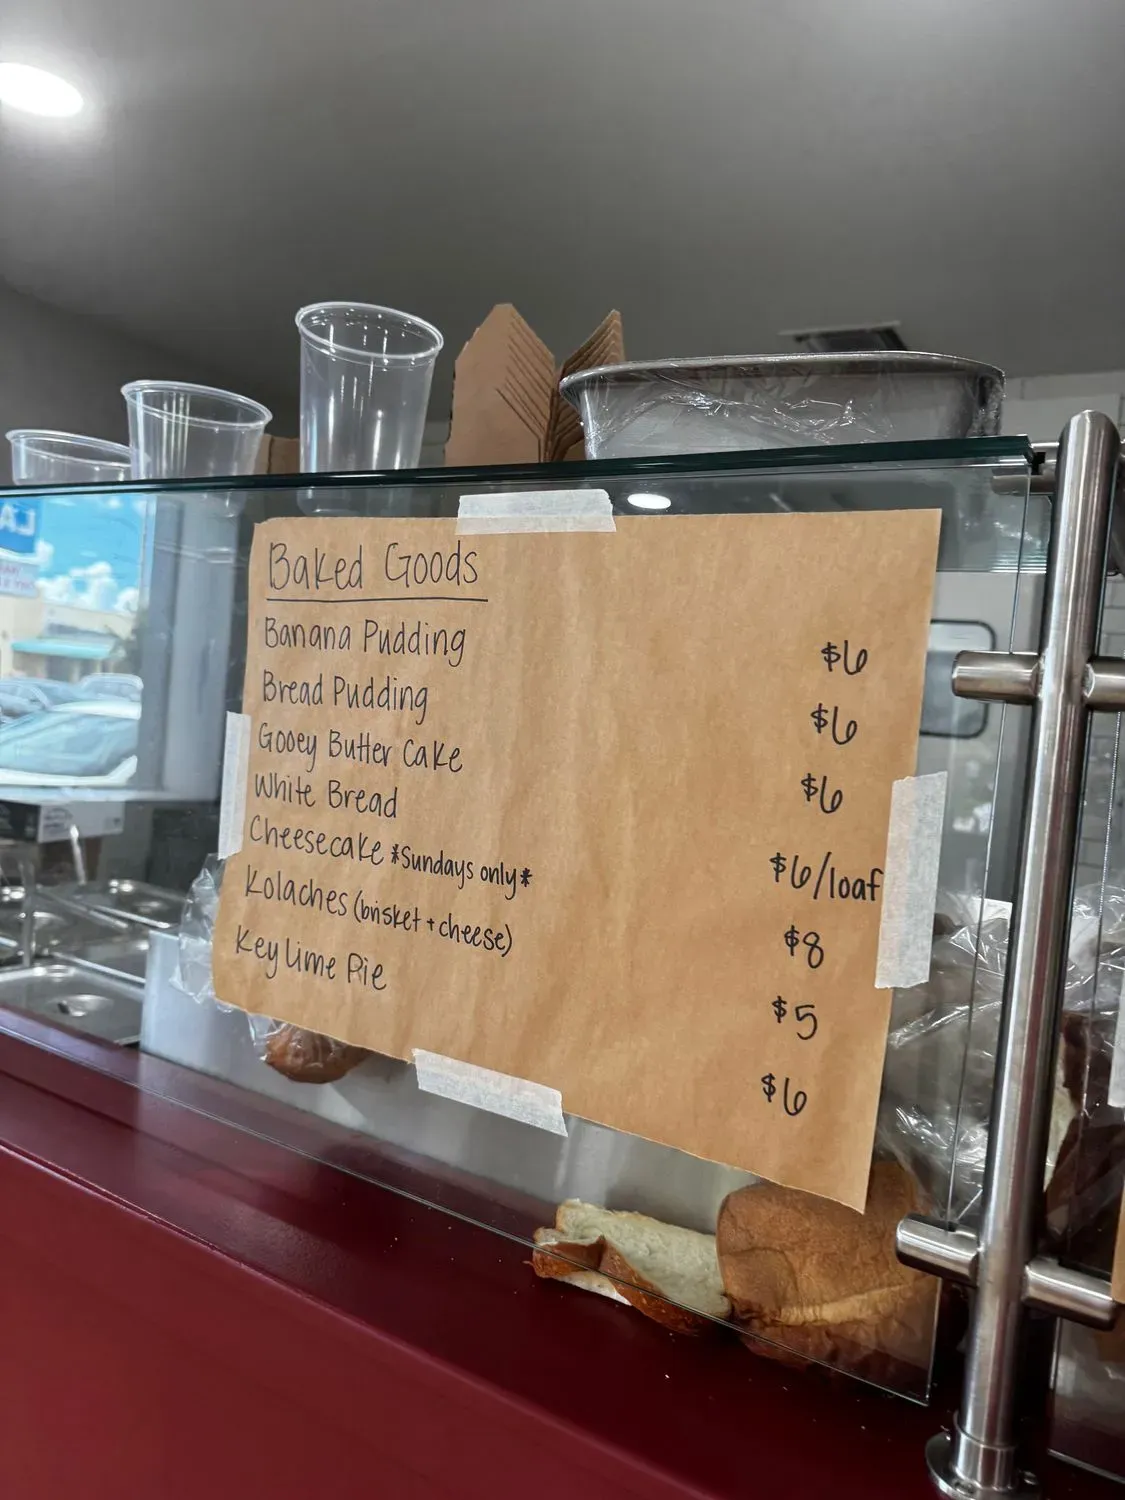 Baked Goods
Banana Pudding $6
Bread Pudding $6
Gooey Butter Cake $6
White Bread $6/loaf
Cheesecake *Sundays only* $8
Kolaches (brisket + cheese) $5
Key Lime Pie $6